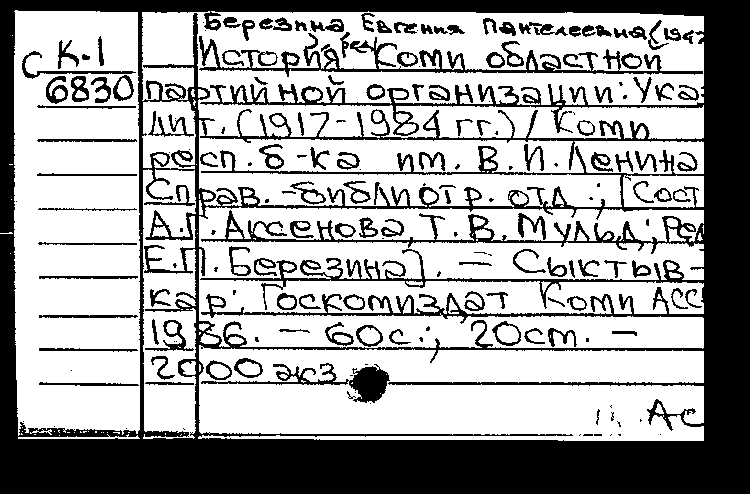 Березина Евгения Пантелеевна (194
ред
С К-1 История Коми областной
6830 партийной организации: Ука
лит. (1917-1984 гг.) / Коми
респ. б-ка им. В.И. Ленина
Справ.-библиогр. отд.; [Сост
А.Г. Аксенова, Т.В. Мульд; Ред
Е.П. Березина]. - Сыктыв-
кар: Госкомиздат Коми АСС
1986. - 60с.; 20см. -
2000 экз
Ас